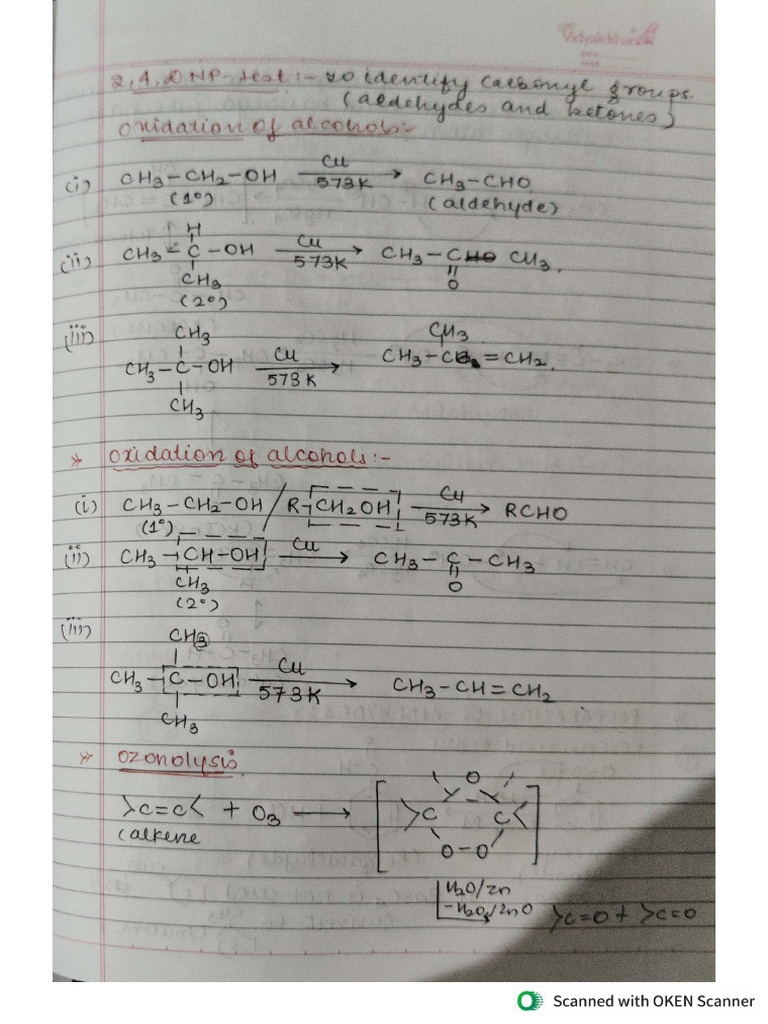 Vidyalekhan
DATE
2,4,DNP-test:- to identify carbonyl groups.
(aldehydes and ketones)
Oxidation of alcohols:-
(i) CH3-CH2-OH Cu 573K → CH3-CHO
(1°) (aldehyde)
H
(ii) CH3-C-OH Cu 573K → CH3-C CH3.
CH3 O
(2°)
(iii) CH3 CH3
CH3-C-OH Cu 573K → CH3-C=CH2.
CH3
Oxidation of alcohols:-
(i) CH3-CH2-OH / R-CH2OH Cu 573K → RCHO
(1°)
(ii) CH3-CH-OH Cu → CH3-C-CH3
CH3 O
(2°)
(iii) CH3
CH3-C-OH Cu 573K → CH3-CH=CH2
CH3
Ozonolysis
>C=C< + O3 → [>C O C< O-O]
(alkene
H2O/Zn
-H2O2/ZnO >C=O + >C=O
Scanned with OKEN Scanner